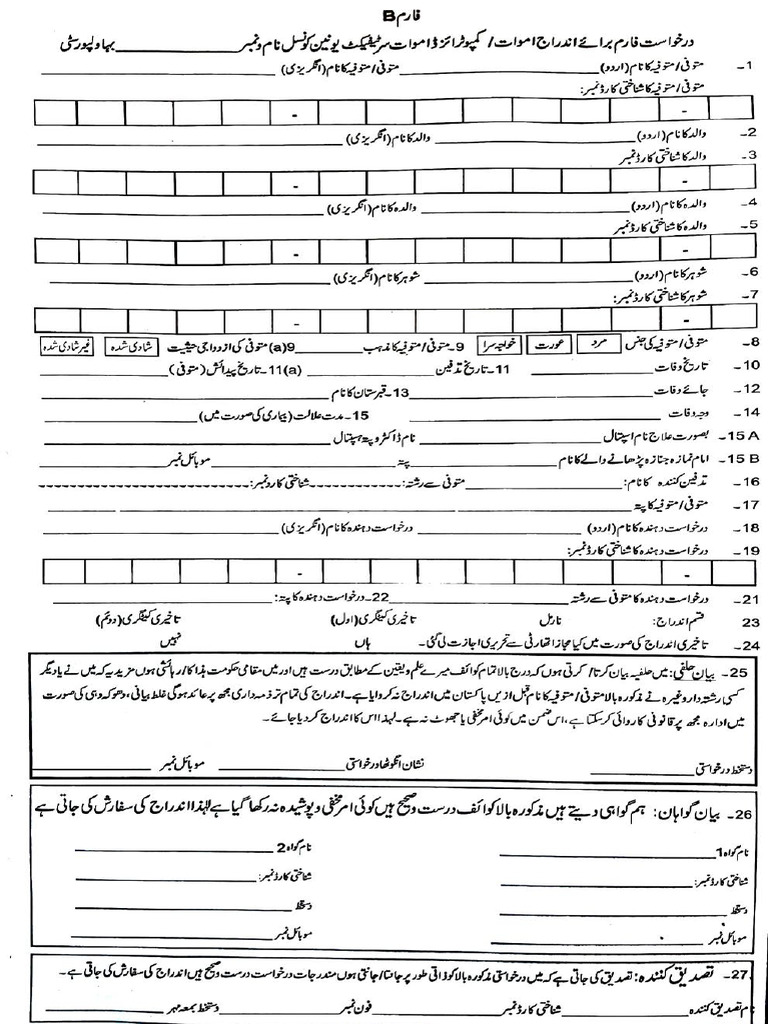 فارم B
درخواست فارم برائے اندراج اموات/ کمپوٹرائزڈ اموات سرٹیفکیٹ یونین کونسل نام ونمبر__________بہاولپورسٹی
1- متوفی/متوفیہ کا نام (اردو)__________متوفی/متوفیہ کا نام (انگریزی)__________
متوفی/متوفیہ کا شناختی کارڈ نمبر:
2- والد کا نام (اردو)__________والد کا نام (انگریزی)__________
3- والد کا شناختی کارڈ نمبر
4- والدہ کا نام (اردو)__________والدہ کا نام (انگریزی)__________
5- والدہ کا شناختی کارڈ نمبر
6- شوہر کا نام (اردو)__________شوہر کا نام (انگریزی)__________
7- شوہر کا شناختی کارڈ نمبر:
8- متوفی/متوفیہ کی جنس مرد عورت خواجہ سرا 9-متوفی/متوفیہ کا مذہب__________9(a) متوفی کی ازدواجی حیثیت شادی شدہ غیر شادی شدہ
10- تاریخ وفات__________11-تاریخ تدفین__________11(a)-تاریخ پیدائش (متوفی)__________
12- جائے وفات__________13-قبرستان کا نام__________
14- وجہ وفات__________15-مدت علالت (بیماری کی صورت میں)__________
15 A- بصورت علاج نام اسپتال__________نام ڈاکٹر و پتہ ہسپتال__________
15 B- امام نمازہ جنازہ پڑھانے والے کا نام__________پتہ__________موبائل نمبر__________
16- تدفین کنندہ کا نام:__________متوفی سے رشتہ:----------شناختی کارڈ نمبر:----------
17- متوفی/متوفیہ کا پتہ__________
18- درخواست دہندہ کا نام (اردو)__________درخواست دہندہ کا نام (انگریزی)__________
19- درخواست دہندہ کا شناختی کارڈ نمبر:
21- درخواست دہندہ کا متوفی سے رشتہ__________22-درخواست دہندہ کا پتہ:__________
23 قسم اندراج: نارمل تاخیری کیٹگری (اول) تاخیری کیٹگری (دوئم)
24- تاخیری اندراج کی صورت میں کیا مجاز اتھارٹی سے تحریری اجازت لی گئی۔ ہاں نہیں
25- بیان حلفی: میں حلفیہ بیان کرتا/ کرتی ہوں کہ درج بالا تمام کوائف میرے علم و یقین کے مطابق درست ہیں اور میں مقامی حکومت ہذا کا/ رہائشی ہوں مزید یہ کہ میں نے یا دیگر
کسی رشتہ دار وغیرہ نے مذکورہ بالا متوفی/متوفیہ کا نام قبل ازیں پاکستان میں اندراج نہ کروایا ہے۔ اندراج کی تمام تر ذمہ داری مجھ پر عائد ہوگی غلط بیانی، دھوکہ دہی کی صورت
میں ادارہ مجھ پر قانونی کاروائی کرسکتا ہے، اس ضمن میں کوئی امر مخفی یا جھوٹ نہ ہے۔ لہذا اس کا اندراج کردیا جائے۔
دستخط درخواستی__________نشان انگوٹھا درخواستی__________موبائل نمبر__________
26- بیان گواہان: ہم گواہی دیتے ہیں مذکورہ بالا کوائف درست و صحیح ہیں کوئی امر مخفی و پوشیدہ نہ رکھا گیا ہے لہذا اندراج کی سفارش کی جاتی ہے
نام گواہ 1__________نام گواہ 2__________
شناختی کارڈ نمبر:__________شناختی کارڈ نمبر:__________
دستخط__________دستخط__________
موبائل نمبر__________موبائل نمبر__________
27- تصدیق کنندہ: تصدیق کی جاتی ہے کہ میں درخواستی مذکورہ بالا کو ذاتی طور پر جانتا/ جانتی ہوں مندرجات درخواست درست و صحیح ہیں اندراج کی سفارش کی جاتی ہے۔
نام تصدیق کنندہ__________شناختی کارڈ نمبر__________فون نمبر__________دستخط بمعہ مہر__________